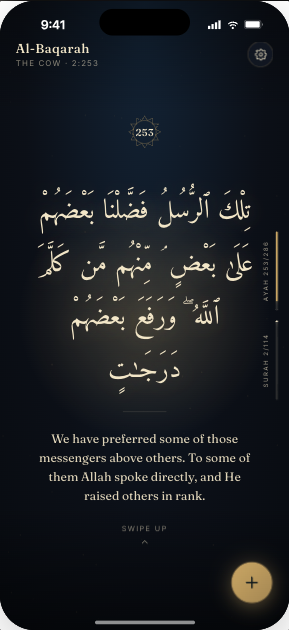 9:41
Al-Baqarah
THE COW · 2:253
253
تِلْكَ ٱلرُّسُلُ فَضَّلْنَا بَعْضَهُمْ
عَلَىٰ بَعْضٍ ۘ مِّنْهُم مَّن كَلَّمَ
ٱللَّهُ ۖ وَرَفَعَ بَعْضَهُمْ
دَرَجَـٰتٍ
AYAH 253/286
SURAH 2/114
We have preferred some of those
messengers above others. To some of
them Allah spoke directly, and He
raised others in rank.
SWIPE UP